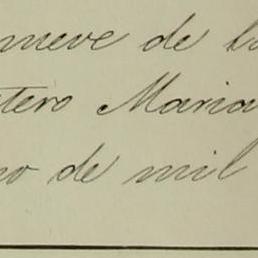 nueve de la
tero Maria
no de mil